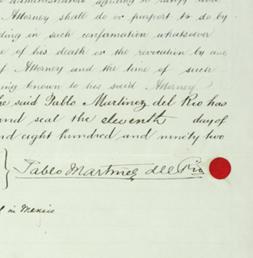 Attorney shall do or purport to do by
ding in such confirmation whatsoever
e of his death or the revocation by any
of Attorney and the time of such
ing known to his said Attorney
he said Pablo Martinez del Rio has
nd seal the eleventh day of
nd eight hundred and ninety two
Pablo Martinez del Rio
in Mexico